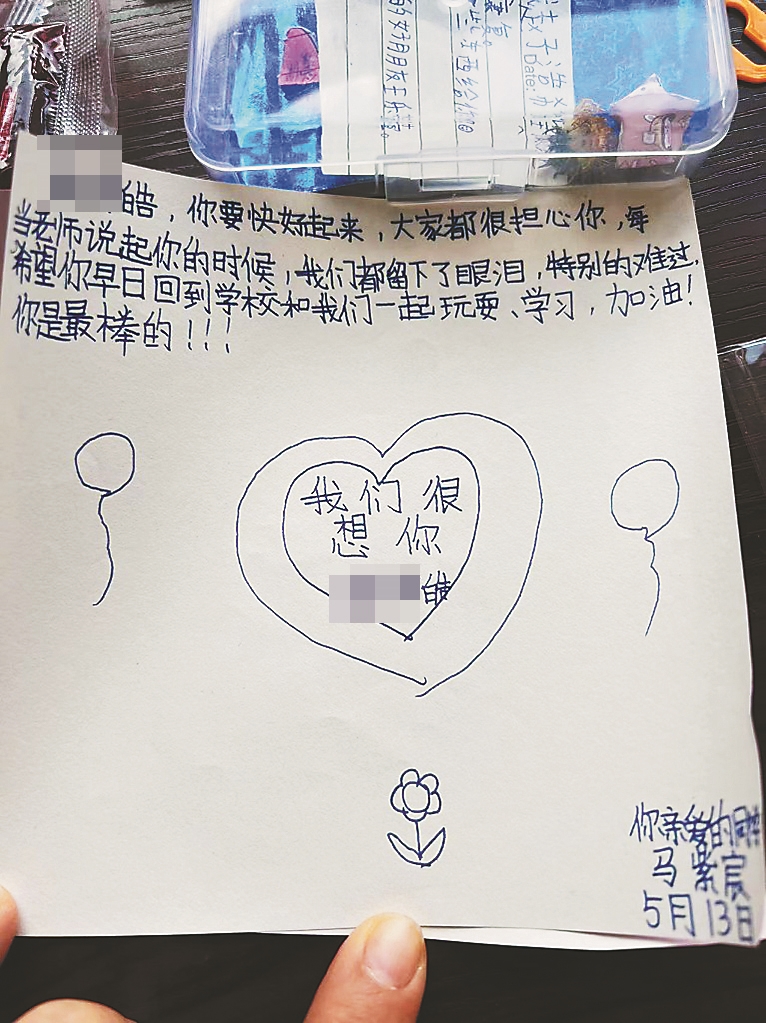 皓，你要快好起来，大家都很担心你，每
当老师说起你的时候，我们都留下了眼泪，特别的难过。
希望你早日回到学校和我们一起玩耍、学习，加油！
你是最棒的！！！
我们很
想你
皓
你亲爱的同学
马紫宸
5月13日
Date:
些东西给你
的好朋友王乐